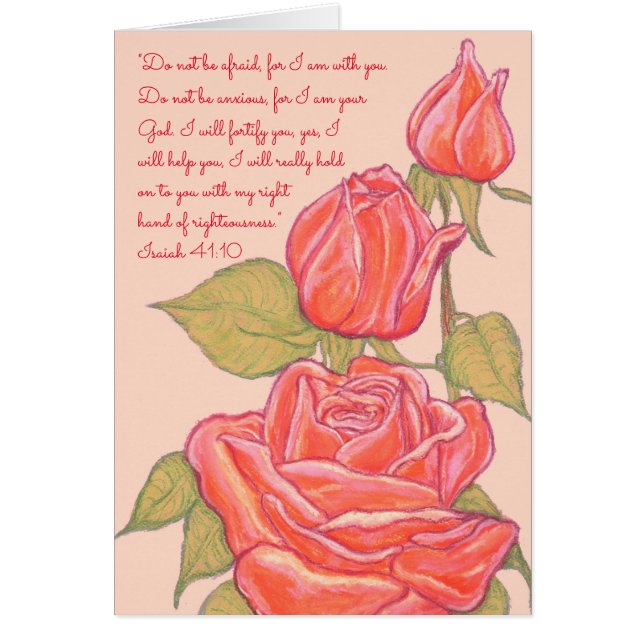 "Do not be afraid, for I am with you.
Do not be anxious, for I am your
God. I will fortify you, yes, I
will help you, I will really hold
on to you with my right
hand of righteousness."
Isaiah 41:10